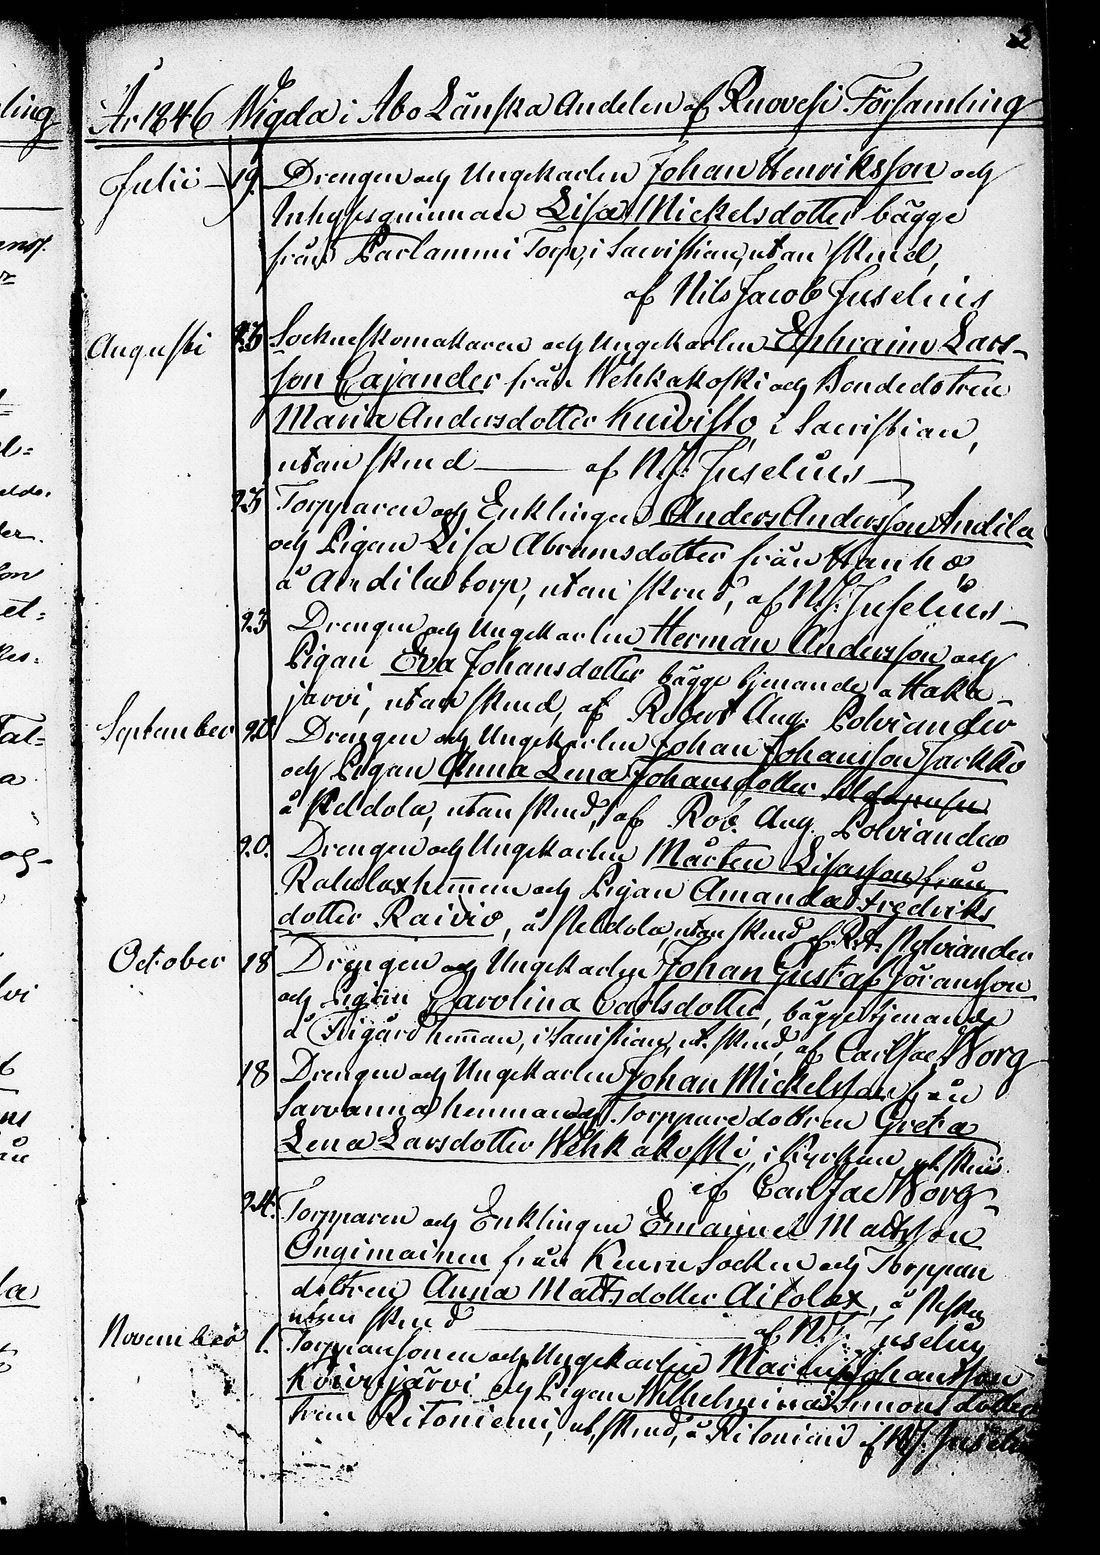 2
År 1846 Wigda i Åbo Länska Andelen af Ruovesi Församling
Julii 19. Drengen och Ungekarlen Johan Henriksson och
Inhysesquinnan Lisa Mickelsdotter bägge
från Parlammi Torp, i Sacristian, utan skrud,
af Nils Jacob Juselius
Augusti 23 Sockneskomakaren och Ungekarlen Ephraim Lars-
son Cajander från Wehkakoski och Bondedotren
Maria Andersdotter Kuivisto, i Sacristian,
utan skrud af N.J. Juselius
23 Torpparen och Enklingen Anders Andersson Andila
och Pigan Lisa Abramsdotter från Hanho
å Andila torp, utan skrud, af N.J. Juselius
23 Drengen och Ungekarlen Herman Andersson och
Pigan Eva Johansdotter bägge tjenande a Haka
järvi, utan skrud, af Robert Aug. Polviander
September 20 Drengen och Ungekarlen Johan Johansson Jarkko
och Pigan Anna Lena Johansdotter
å Peldola, utan skrud, af Rob. Aug. Polviander
20. Drengen och Ungekarlen Mårten Lisasson från
hemman och Pigan Amanda Fredriks
dotter Raivio, å Peldola, utan skrud af Rob. Polviander
October 18 Drengen och Ungekarlen Johan Gustaf Göransson
och Pigan Carolina Carlsdotter, bägge tjenande
å Frigård hemman, i Sacristian, ut. skrud, af Carl Jac Worg
18 Drengen och Ungekarlen Johan Mickelsson från
Sarvanna hemman och Torpparedotren Greta
Lena Larsdotter Wehkakoski, i Kyrkan ut. skrud
af Carl Jac Worg
24. Torpparen och Enklingen Emanuel Mattsson
Ongimainen från Keuru Socken och Torppare
dotren Anna Mattsdotter Aitolax, å
utan skrud af N.J. Juselius
November 1. Torpparsonen och Ungekarlen Johansson
Koverojärvi och Pigan Wilhelmina Simonsdotter
från Ritoniemi, ut. skrud, å Ritoniemi af N.J. Juselius